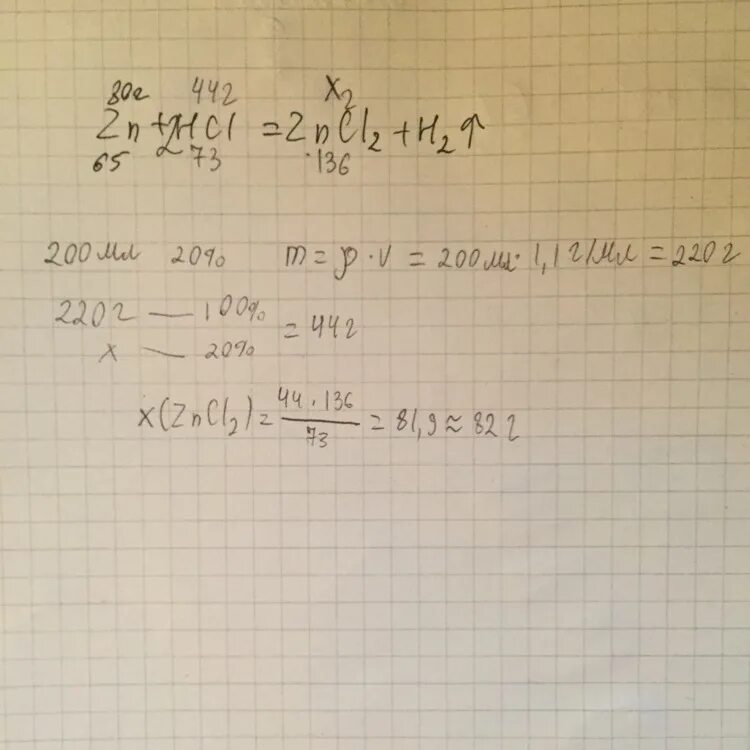 80г 44г x г
Zn + 2HCl = ZnCl₂ + H₂↑
65 73 136
200мл 20% m = ρ · v = 200мл · 1,1 г/мл = 220 г
220 г — 100%
= 44 г
x — 20%
x(ZnCl₂) = 44 · 136 / 73 = 81,9 ≈ 82 г